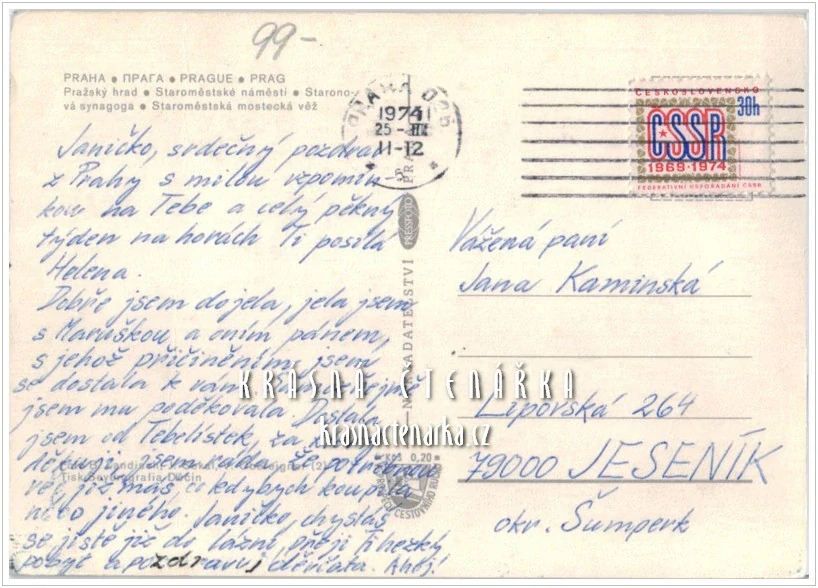 99-
PRAHA • ПРАГА • PRAGUE • PRAG
Pražský hrad • Staroměstské náměstí • Starono-
vá synagoga • Staroměstská mostecká věž
PRAHA 025
1974
25 -
11-12
ČESKOSLOVENSKO
30h
ČSSR
1969·1974
FEDERATIVNÍ USPOŘÁDÁNÍ ČSSR
Janičko, srdečný pozdrav
z Prahy s milou vzpomín-
kou na Tebe a celý pěkný
týden na horách Ti posílá
Helena.
Dobře jsem dojela, jela jsem
s Maruškou a oním pánem,
s jehož přičiněním jsem
se dostala k vám
jsem mu poděkovala. Dostala
jsem od Tebe lístek, za
děkuji, jsem ráda, že
již máš, co kdybych koupila
něco jiného. Janičko, chystáš
se jistě již do lázní přeji Ti hezký
pobyt a pozdravuj děvčata. Ahoj!
Tisk Severografia Děčín
Kčs 0,20
NAKLADATELSTVÍ
PRESSFOTO
Vážená paní
Jana Kaminská
Lipovská 264
79000 JESENÍK
okr. Šumperk
KRÁSNÁ ČTENÁŘKA
krasnactenarka.cz